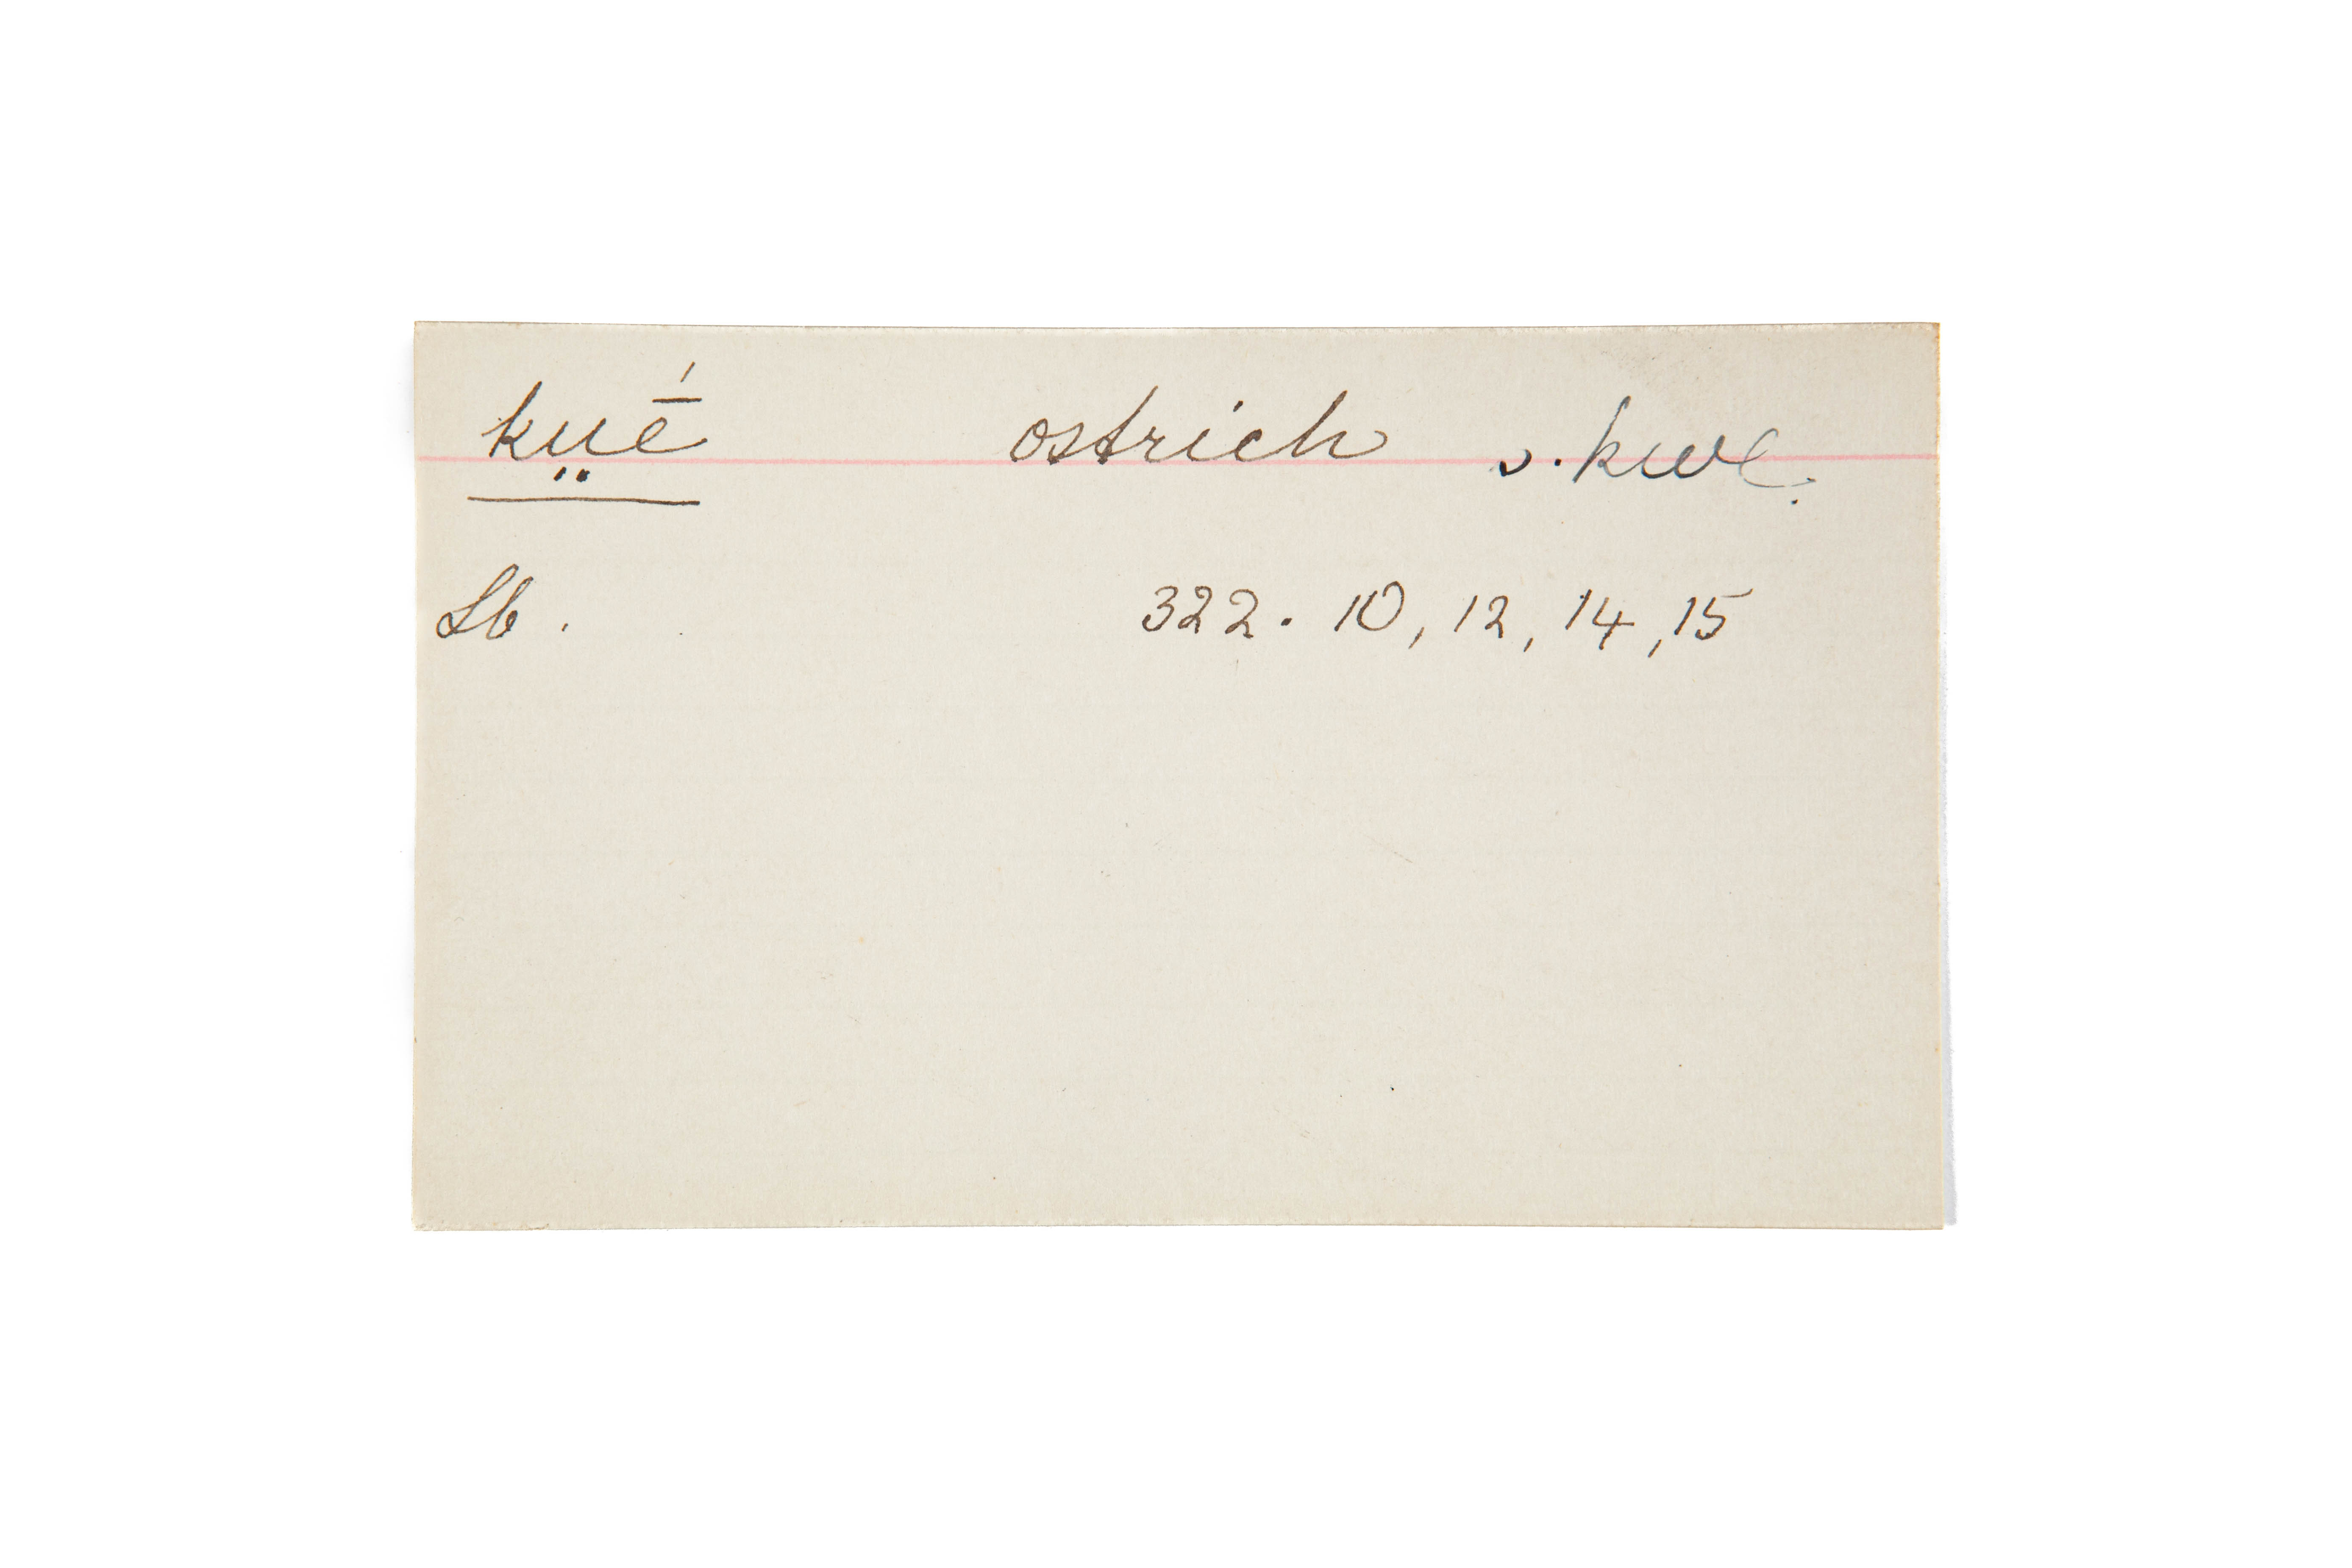 kṳḗ ostrich v. kwe.
Lb. 322. 10, 12, 14, 15